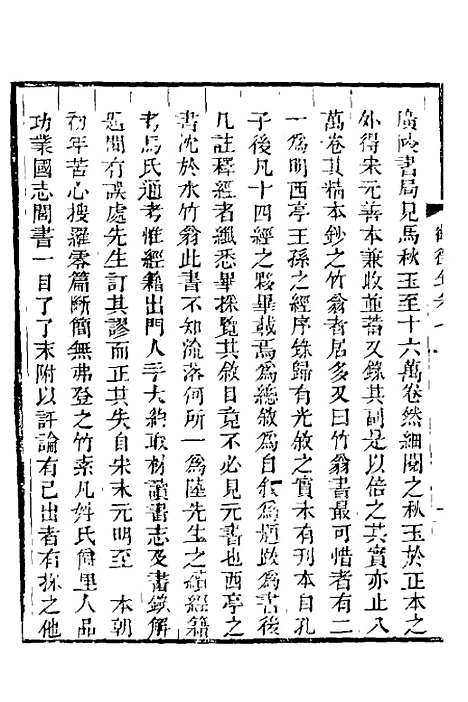 廣陵書局見馬秋玉至十六萬卷然細閱之秋玉於正本之
外得宋元善本兼收並蓄又錄其副是以倍之其實亦止八
萬卷其精本鈔之竹翁者居多又曰竹翁書最可惜者有二
一為明西亭王孫之經序錄歸有光敘之實未有刊本自孔
子後凡十四經之夥畢載焉為總敘為自敘為題跋為書後
凡註釋經者纖悉畢採覽其敘目竟不必見元書也西亭之
書沈於水竹翁此書不知流落何所一為陸先生之續經籍
考馬氏通考惟經籍出門人手大約取材讀書志及書錄解
題間有誤處先生訂其謬而正其失自宋末元明至 本朝
初年苦心搜羅零篇斷簡無弗登之竹素凡姓氏爵里人品
功業國志閣書一目了了末附以評論有己出者有採之他